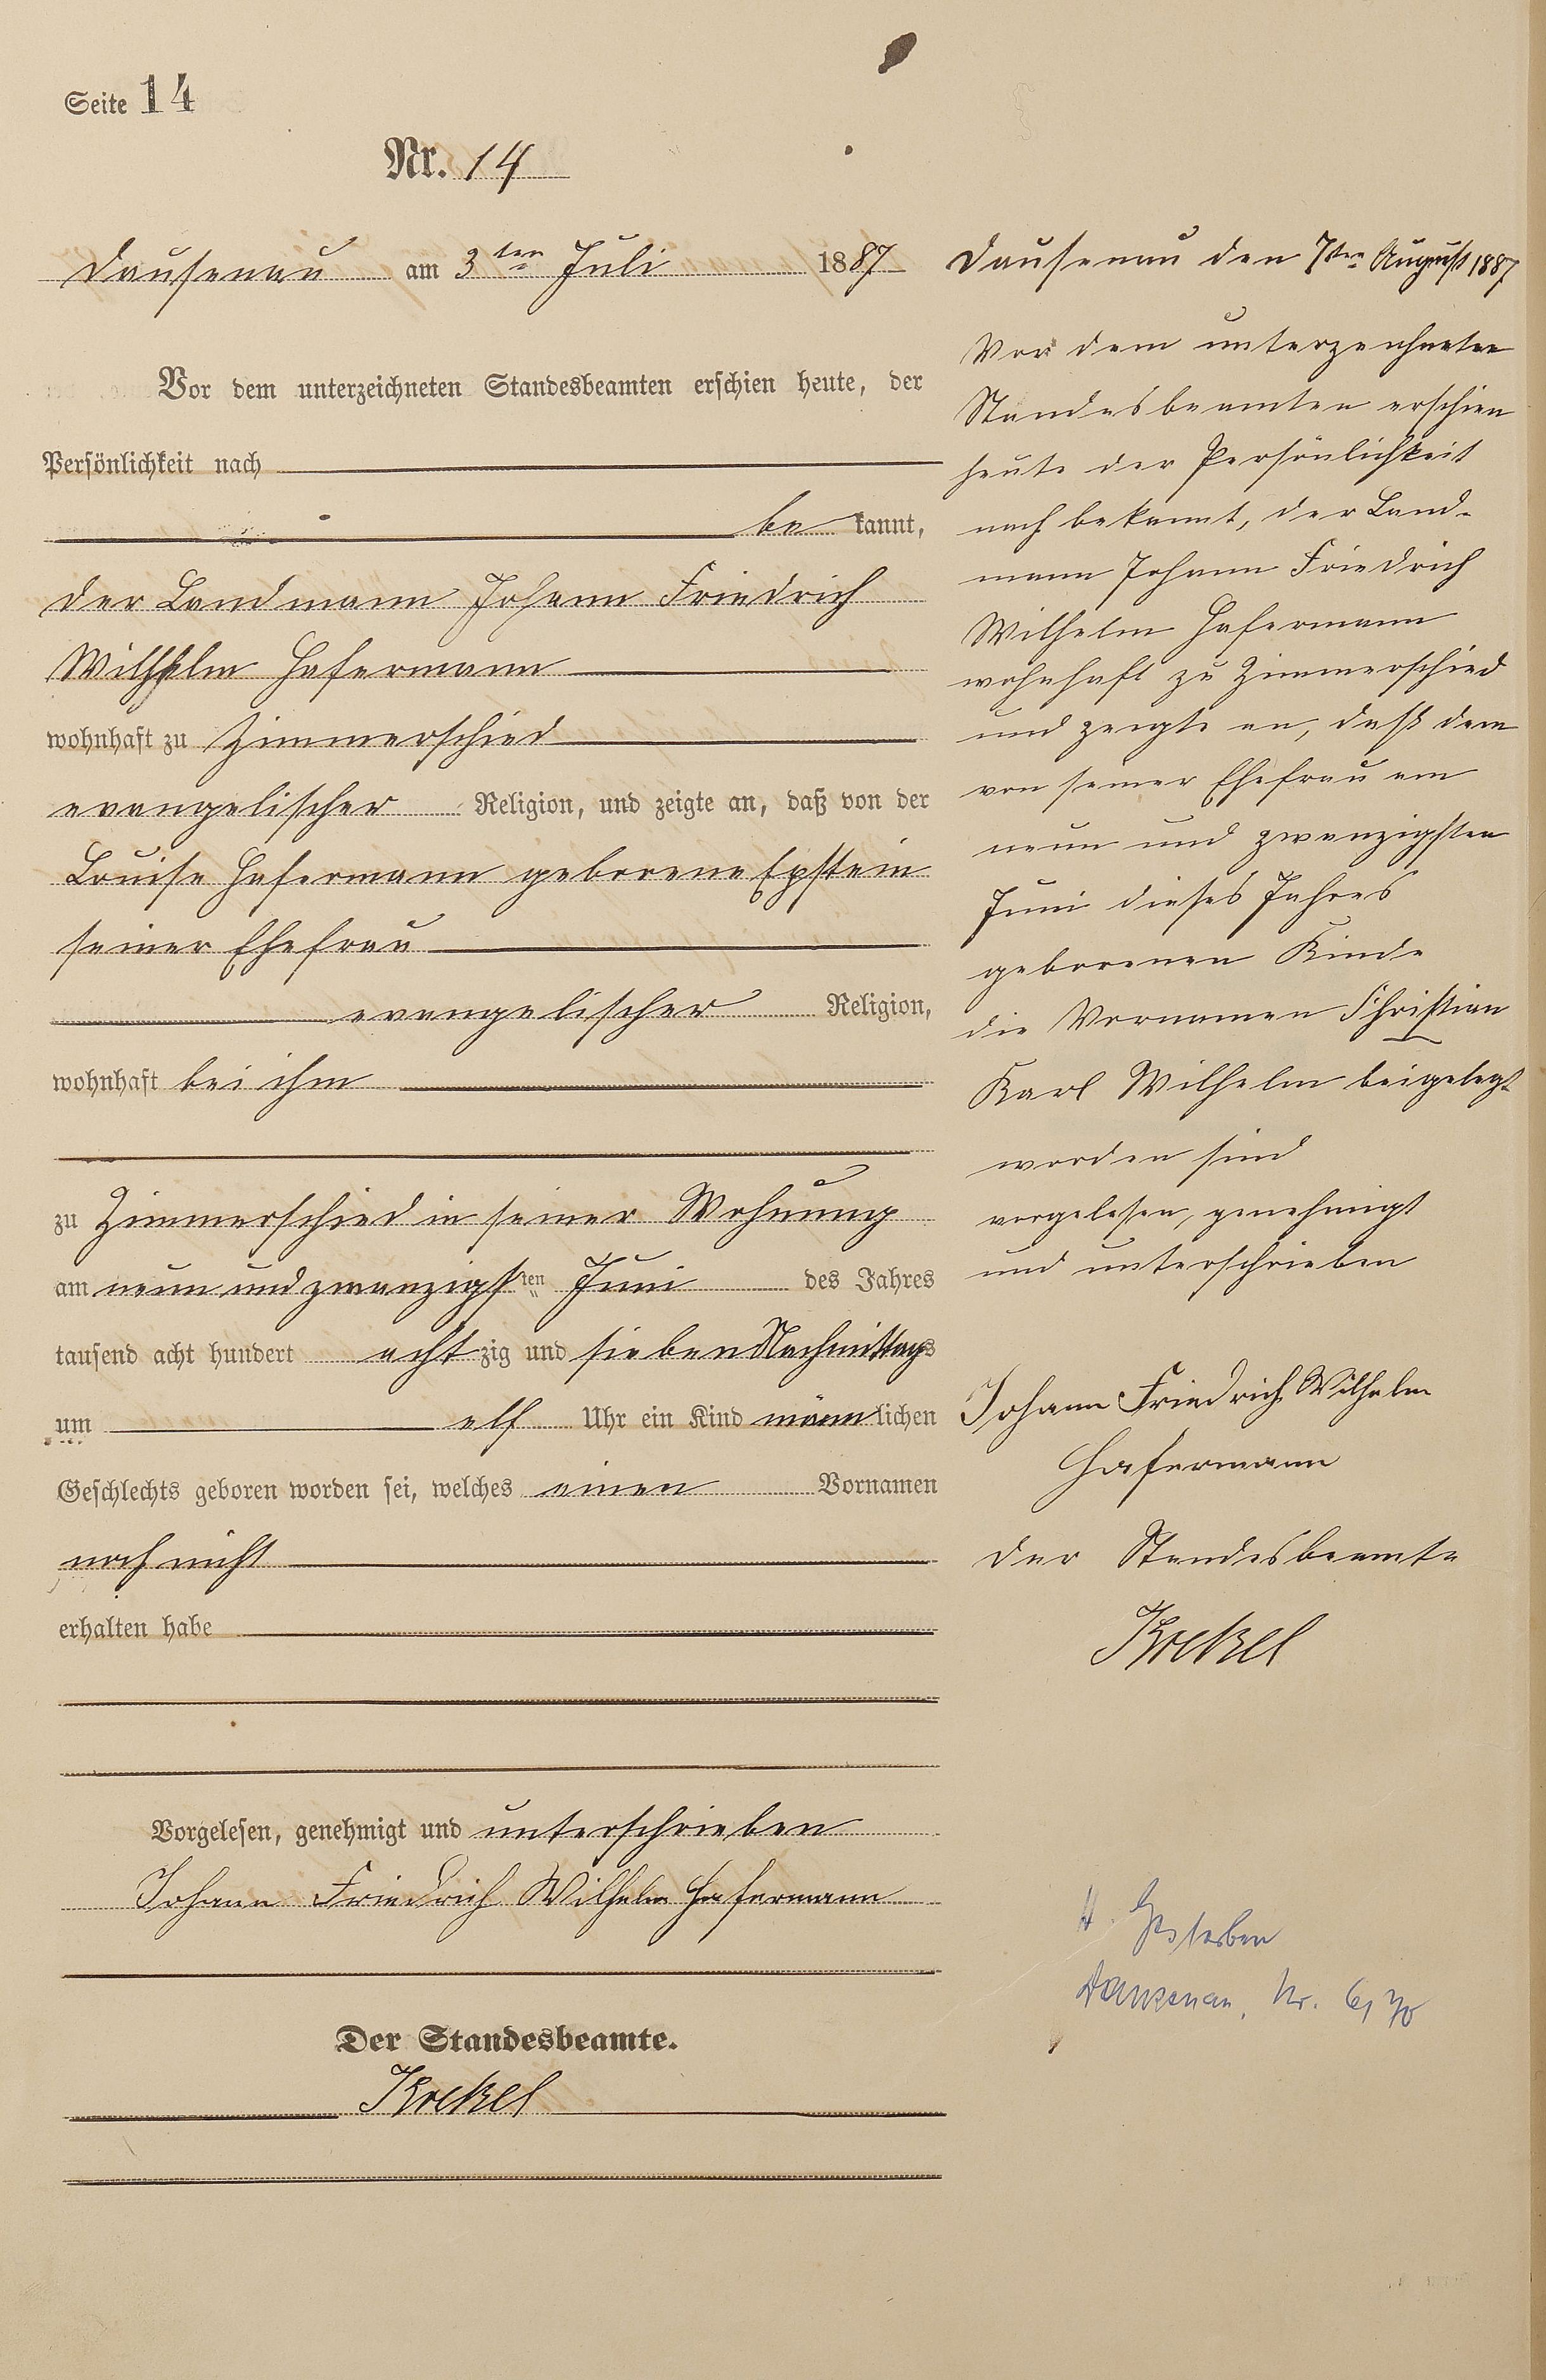 Seite 14
Nr. 14
Dausenau am 3ten Juli 1887
Vor dem unterzeichneten Standesbeamten erschien heute, der
Persönlichkeit nach
be kannt,
der Landmann Johann Friedrich
Wilhelm Hafermann
wohnhaft zu Zimmerschied
evangelischer Religion, und zeigte an, daß von der
Louise Hafermann geborene Epstein
seiner Ehefrau
evangelischer Religion,
wohnhaft bei ihm
zu Zimmerschied in seiner Wohnung
am neun und zwanzigsten Juni des Jahres
tausend acht hundert acht zig und sieben Nachmittags
um elf Uhr ein Kind männlichen
Geschlechts geboren worden sei, welches einen Vornamen
noch nicht
erhalten habe
Vorgelesen, genehmigt und unterschrieben
Johann Friedrich Wilhelm Hafermann
Der Standesbeamte.
Krekel
Dausenau den 7ten August 1887
Vor dem unterzeichneten
Standesbeamten erschien
heute der Persönlichkeit
nach bekannt, der Land-
mann Johann Friedrich
Wilhelm Hafermann
wohnhaft zu Zimmerschied
und zeigte an, daß dem
von seiner Ehefrau am
neun und zwanzigsten
Juni dieses Jahres
geborenen Kinde
die Vornamen Christian
Karl Wilhelm beigelegt
worden sind
vorgelesen, genehmigt
und unterschrieben
Johann Friedrich Wilhelm
Hafermann
Der Standesbeamte
Krekel
Gestorben
Dausenau, Nr. 6/70